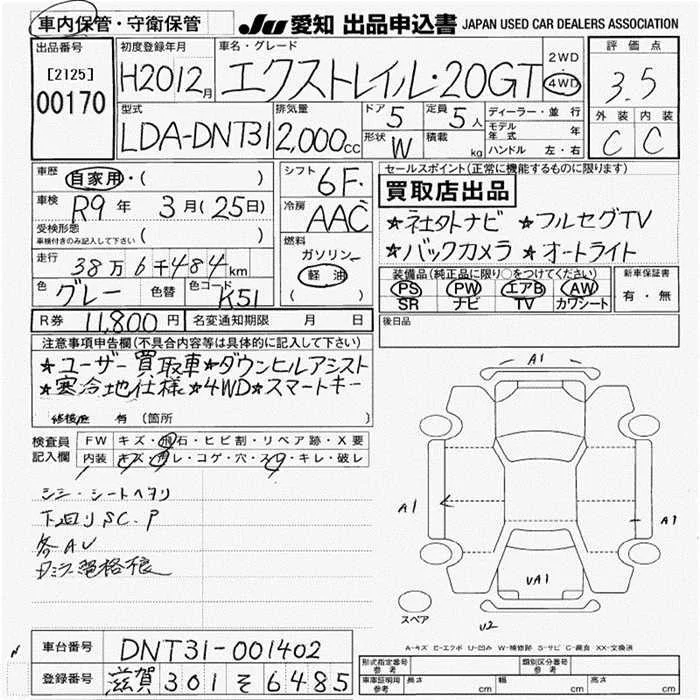 車内保管・守衛保管
JU 愛知 出品申込書 JAPAN USED CAR DEALERS ASSOCIATION
出品番号 [2125] 00170
初度登録年月 H20 12月
車名・グレード エクストレイル・20GT
2WD 4WD
評価点 3.5
外装 C 内装 C
型式 LDA-DNT31
排気量 2,000cc
ドア 5 定員 5人
形状 W 積載 kg
ディーラー・並行
モデル年式 年
ハンドル 左・右
車歴 自家用・( )
車検 R9年 3月(25日)
受検形態 車検付きのみ記入して下さい ( )
走行 38万6千484km
色 グレー 色替 色コード K51
シフト 6F.
冷房 AAC
燃料 ガソリン 軽油 ( )
セールスポイント(正常に機能するものに限ります)
買取店出品
★社外ナビ ★フルセグTV
★バックカメラ ★オートライト
装備品(純正品に限り○をつけてください)
PS PW エアB AW
SR ナビ TV カワシート
新車保証書 有・無
R券 11,800円 名変通知期限 月 日
後日品
注意事項申告欄(不具合内容等は具体的に記入して下さい)
★ユーザー買取車★ダウンヒルアシスト
★寒冷地仕様★4WD★スマートキー
修復歴 有 (箇所 )
検査員記入欄
FW キズ・飛石・ヒビ割・リペア跡・X要
内装 キズ・汚レ・コゲ・穴・スレ・キレ・破レ
シミ・シートヘタリ
下回りSC.P
各AU
A1
A1
A1
UA1
U2
スペア
A-キズ E-エクボ U-凹み W-補修跡 S-サビ C-腐食 XX-交換済
車台番号 DNT31-001402
登録番号 滋賀 301 そ 6485
形式指定番号 参考 類別区分番号 参考
車庫証明記入用 参考 長さ cm 幅 cm 高さ cm